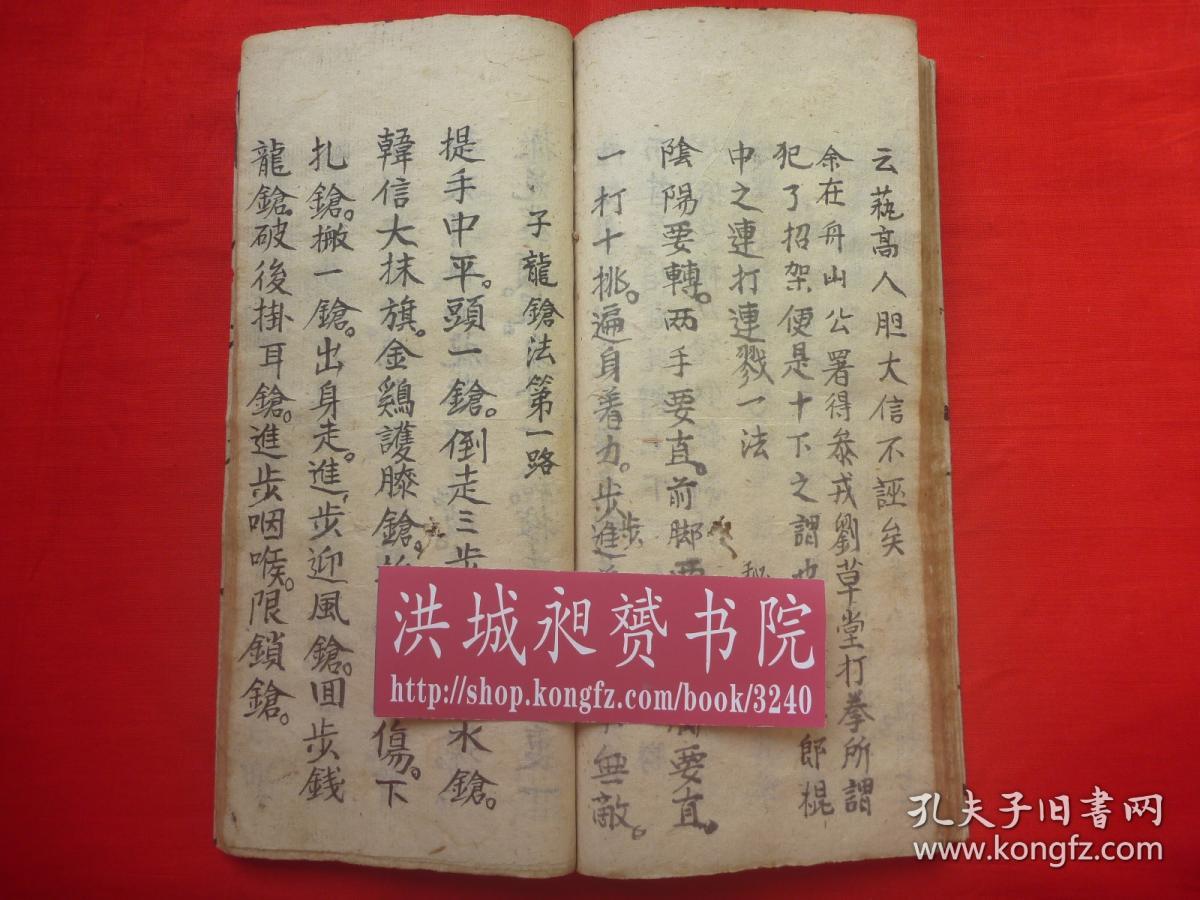 云蓺高人胆大信不誣矣
余在舟山公署得叅戎劉草堂打拳所謂
犯了招架便是十下之謂也
郎棍
中之連打連戮一法
陰陽要轉。两手要直。前脚要
要直。
一打十挑。遍身着力。步步進
無敵。
子龍鎗法第一路
提手中平。頭一鎗。倒走三步
水鎗。
韓信大抹旗。金鷄護膝鎗。
傷。下
扎鎗。撇一鎗。出身走。進步迎風鎗。囬步銭
龍鎗。破後掛耳鎗。進步咽喉。限鎖鎗。
洪城昶赟书院
http://shop.kongfz.com/book/3240
孔夫子旧书网
www.kongfz.com